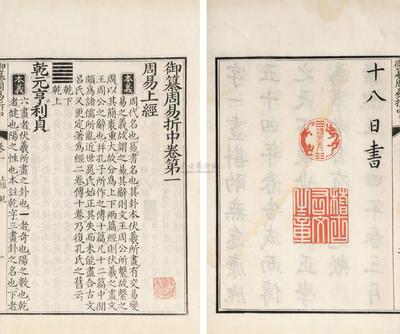 御纂周易折中
十八日書
御纂周易折中卷第一
周易上經
本義 周代名也易書名也其卦本伏羲所畫有交易變
易之義故謂之易其辭則文王周公所繫故繫之
周以其簡袠重大故分為上下兩篇經則伏羲之畫文
王周公之辭也并孔子所作之傳十篇凡十二篇中間
頗為諸儒所亂近世晁氏始正其失而未能盡合古文
呂氏又更定著為經二卷傳十卷乃復孔氏之舊云
乾下
乾上
乾元亨利貞
本義 六畫者伏羲所畫之卦也一者奇也陽之數也乾
者健也陽之性也本註乾字三畫卦之名也下者
御纂周易折中 上經 乾